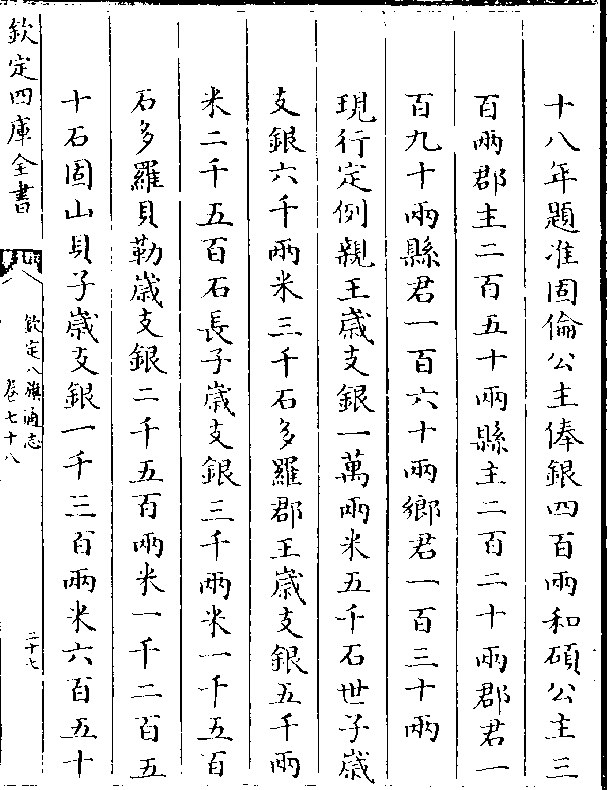 十八年題准固倫公主俸銀四百兩和碩公主三
百兩郡主二百五十兩縣主二百二十兩郡君一
百九十兩縣君一百六十兩鄉君一百三十兩
現行定例親王歲支銀一萬兩米五千石世子歲
支銀六千兩米三千石多羅郡王歲支銀五千兩
米二千五百石長子歲支銀三千兩米一千五百
石多羅貝勒歲支銀二千五百兩米一千二百五
十石固山貝子歲支銀一千三百兩米六百五十
欽定四庫全書
欽定八旗通志
卷七十八
二十七